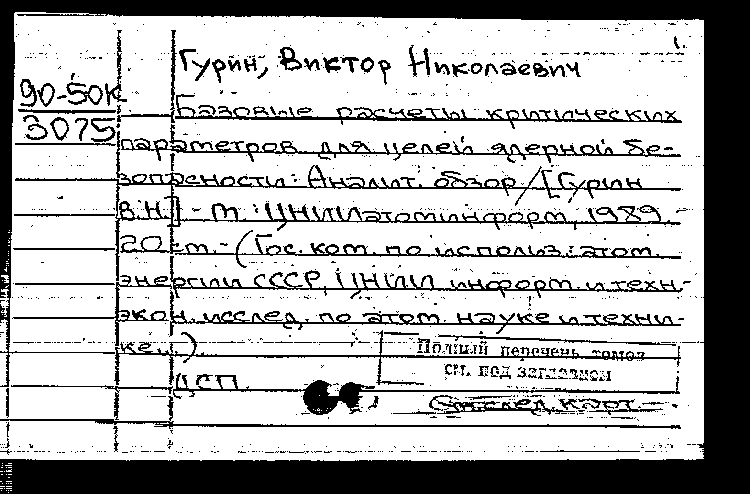 1.
Гурин, Виктор Николаевич
90-50К
3075
Базовые расчеты критических
параметров для целей ядерной бе-
зопасности: Аналит. обзор / [Гурин
В.Н.] - М.: ЦНИИатоминформ, 1989. -
20 см. - (Гос. ком. по использ. атом.
энергии СССР, ЦНИИ информ. и техн.-
экон. исслед. по атом. науке и техни-
ке...).
Полный перечень томов
см. под заглавием
ДСП.
См. след. карт.